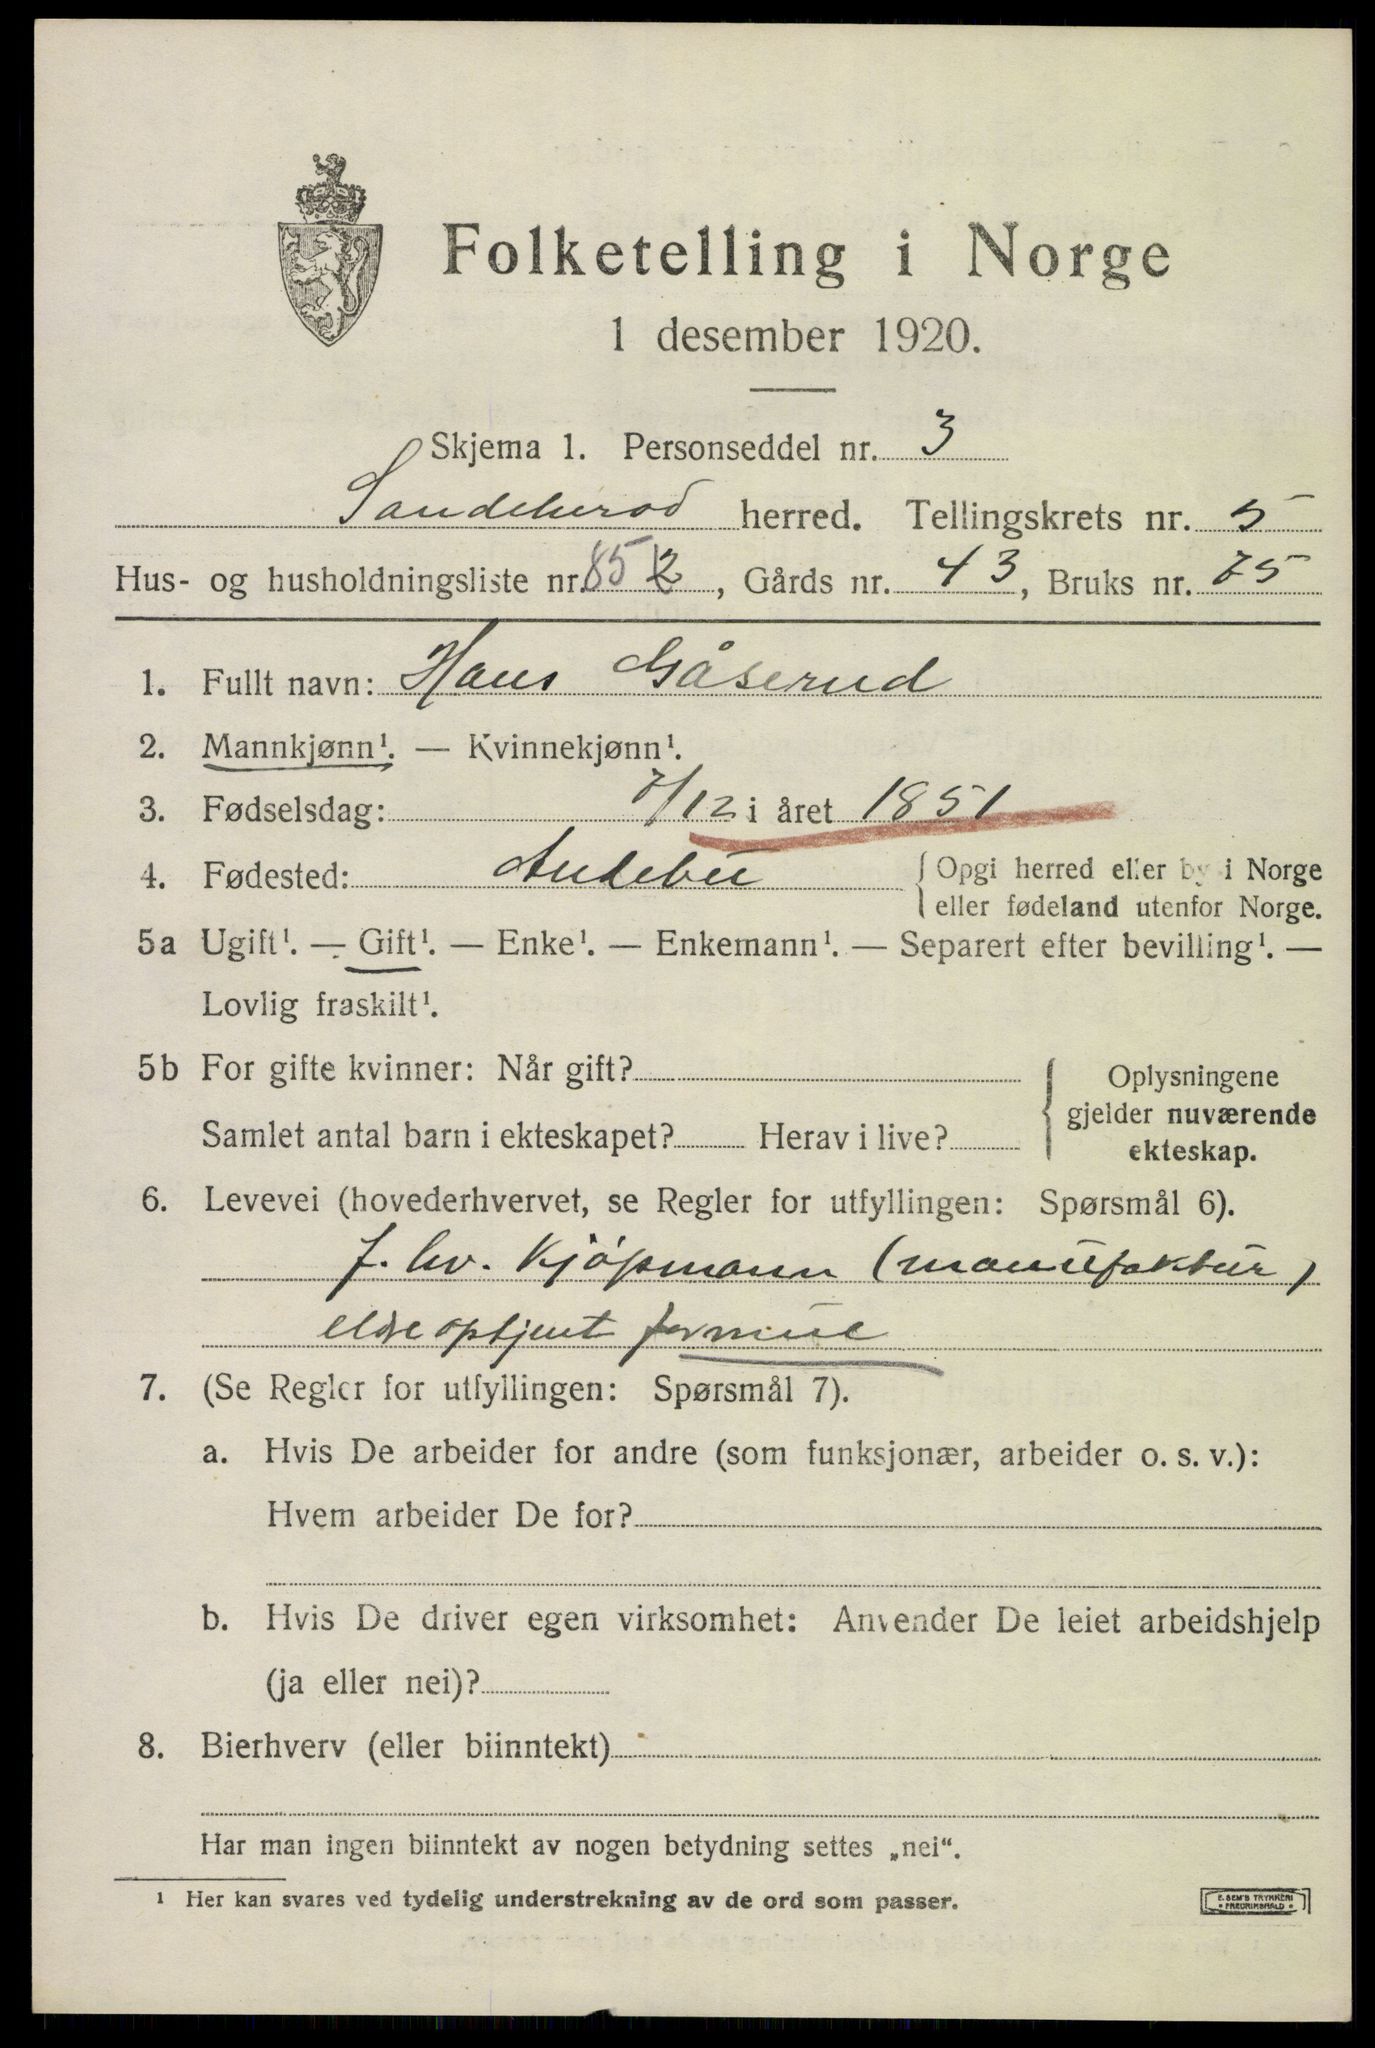 Folketelling i Norge
1 desember 1920.
Skjema 1. Personseddel nr. 3
Sandeherod herred. Tellingskrets nr. 5
Hus- og husholdningsliste nr. 85 2, Gårds nr. 43, Bruks nr. 75
1. Fullt navn: Hans Gåserud
2. Mannkjønn¹. — Kvinnekjønn¹.
3. Fødselsdag: 7/12 i året 1851
4. Fødested: Andebu { Opgi herred eller by i Norge
eller fødeland utenfor Norge.
5a Ugift¹. — Gift¹. — Enke¹. — Enkemann¹. — Separert efter bevilling¹. —
Lovlig fraskilt¹.
5b For gifte kvinner: Når gift? { Oplysningene
gjelder nuværende
Samlet antal barn i ekteskapet? Herav i live?
ekteskap.
6. Levevei (hovederhvervet, se Regler for utfyllingen: Spørsmål 6).
f. hv. Kjøpmann (manufaktur)
eldre optjent formue
7. (Se Regler for utfyllingen: Spørsmål 7).
a. Hvis De arbeider for andre (som funksjonær, arbeider o. s. v.):
Hvem arbeider De for?
b. Hvis De driver egen virksomhet: Anvender De leiet arbeidshjelp
(ja eller nei)?
8. Bierhverv (eller biinntekt)
Har man ingen biinntekt av nogen betydning settes „nei“.
¹ Her kan svares ved tydelig understrekning av de ord som passer.
E. SEM'S TRYKKERI
FREDRIKSHALD